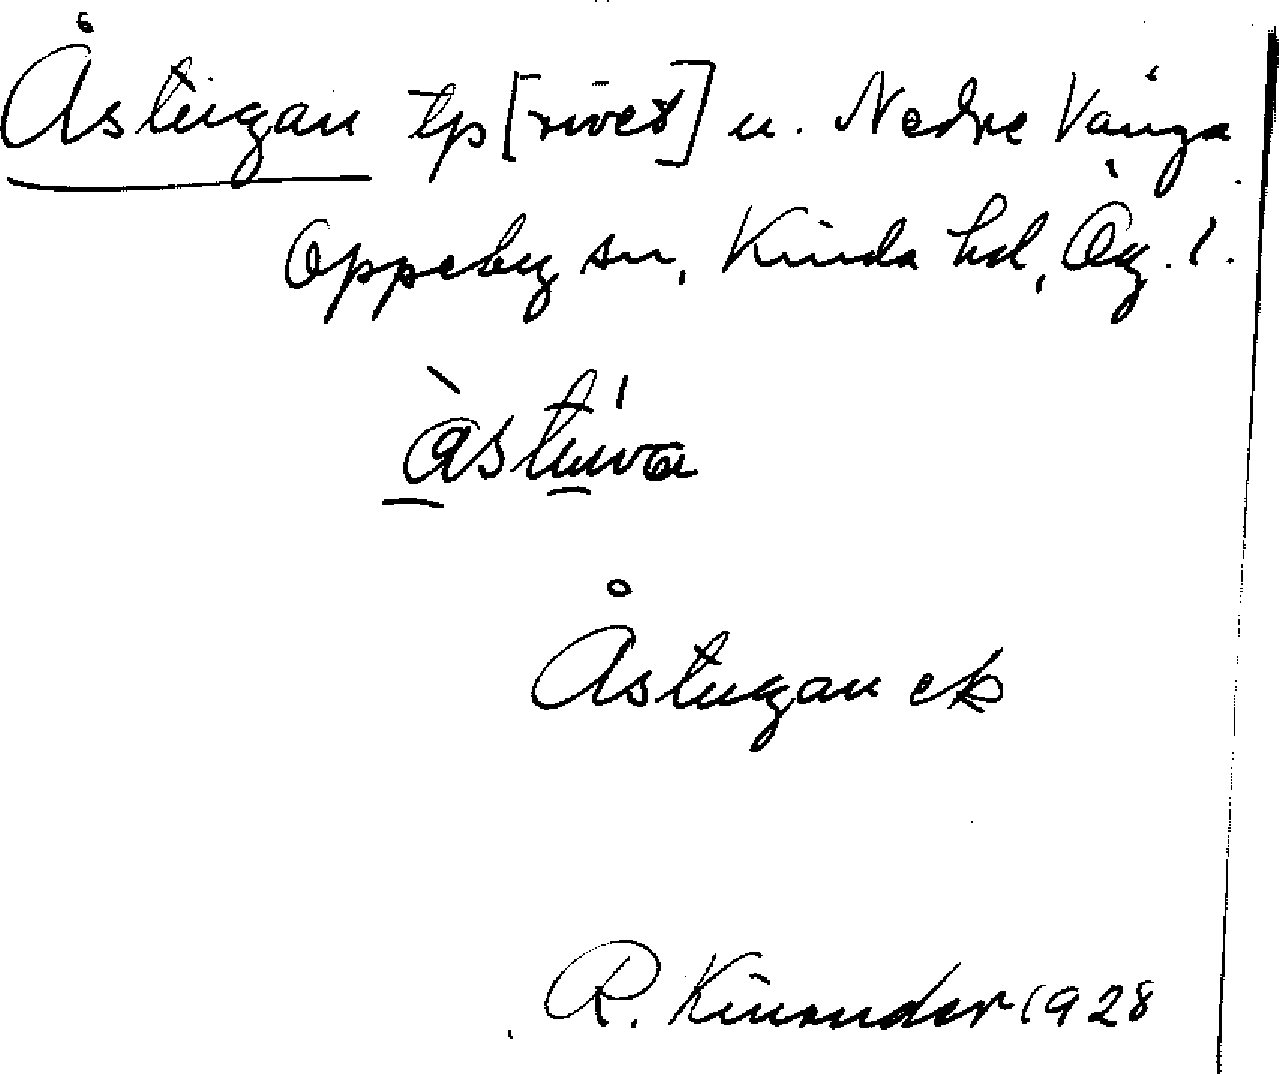 Åstugan tp [rivet] u. Nedre Vånga
Oppeby sn, Kinda hd, Ög. l.
åstuva
Åstugan ek
R. Kinander 1928